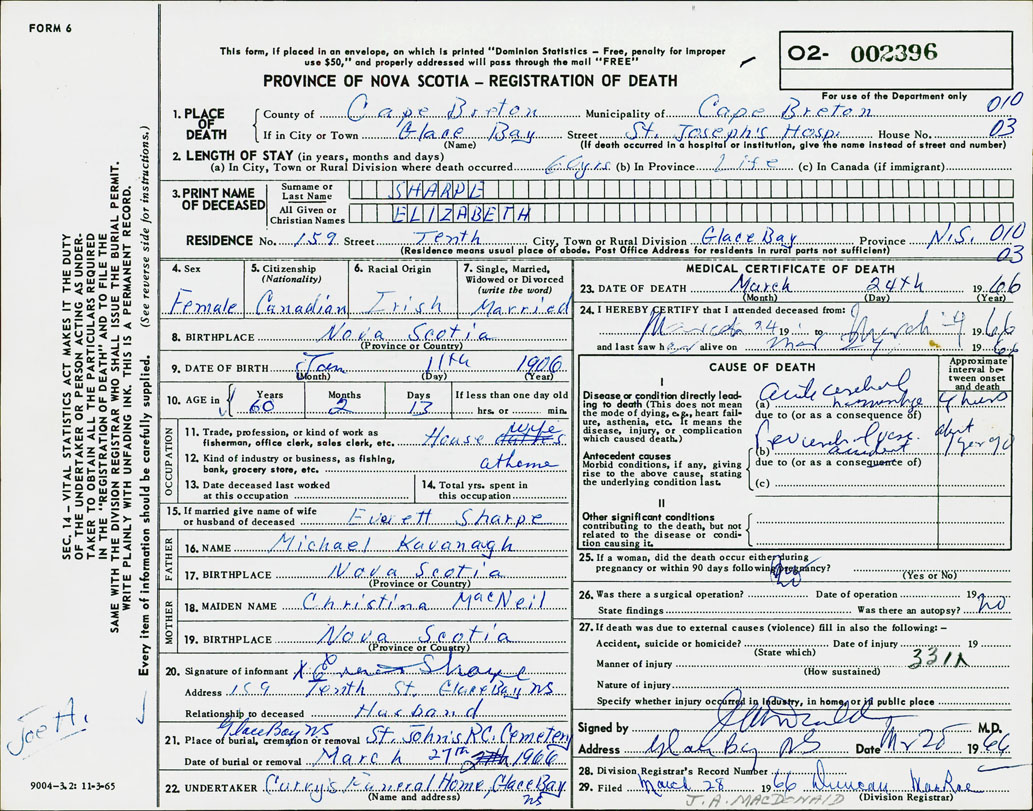 FORM 6
This form, if placed in an envelope, on which is printed "Dominion Statistics – Free, penalty for improper
use $50," and properly addressed will pass through the mail "FREE"
PROVINCE OF NOVA SCOTIA – REGISTRATION OF DEATH
02- 002396
For use of the Department only
1. PLACE OF DEATH
County of Cape Breton Municipality of Cape Breton 010
If in City or Town Glace Bay Street St. Joseph's Hosp. House No. 03
(Name) (If death occurred in a hospital or institution, give the name instead of street and number)
2. LENGTH OF STAY (in years, months and days)
(a) In City, Town or Rural Division where death occurred 60yrs (b) In Province Life (c) In Canada (if immigrant)
3. PRINT NAME OF DECEASED
Surname or Last Name SHARPE
All Given or Christian Names ELIZABETH
RESIDENCE No. 159 Street Tenth City, Town or Rural Division Glace Bay Province N.S. 010
(Residence means usual place of abode. Post Office Address for residents in rural parts not sufficient) 03
4. Sex
Female
5. Citizenship
(Nationality)
Canadian
6. Racial Origin
Irish
7. Single, Married,
Widowed or Divorced
(write the word)
Married
8. BIRTHPLACE Nova Scotia
(Province or Country)
9. DATE OF BIRTH Jan 11th 1906
(Month) (Day) (Year)
10. AGE in Years Months Days If less than one day old
60 2 13 hrs. or min.
OCCUPATION
11. Trade, profession, or kind of work as
fisherman, office clerk, sales clerk, etc. House wife
12. Kind of industry or business, as fishing,
bank, grocery store, etc. at home
13. Date deceased last worked
at this occupation
14. Total yrs. spent in
this occupation
15. If married give name of wife
or husband of deceased Everett Sharpe
FATHER
16. NAME Michael Kavanagh
17. BIRTHPLACE Nova Scotia
(Province or Country)
MOTHER
18. MAIDEN NAME Christina MacNeil
19. BIRTHPLACE Nova Scotia
(Province or Country)
20. Signature of informant X Everett Sharpe
Address 159 Tenth St. Glace Bay NS
Relationship to deceased Husband
Glace Bay NS
21. Place of burial, cremation or removal St. John's R.C. Cemetery
Date of burial or removal March 27th 1966
22. UNDERTAKER Curry's Funeral Home, Glace Bay
(Name and address) NS
MEDICAL CERTIFICATE OF DEATH
23. DATE OF DEATH March 24th 1966
(Month) (Day) (Year)
24. I HEREBY CERTIFY that I attended deceased from:
March 24 19 to March 24 1966
and last saw her alive on Mar 24 1966
CAUSE OF DEATH
Approximate
interval be-
tween onset
and death
I
Disease or condition directly lead-
ing to death (This does not mean
the mode of dying, e.g., heart fail-
ure, asthenia, etc. It means the
disease, injury, or complication
which caused death.)
(a) acute cerebral
hemorrhage 4 hours
due to (or as a consequence of)
Antecedent causes
Morbid conditions, if any, giving
rise to the above cause, stating
the underlying condition last.
(b) accident
due to (or as a consequence of)
(c)
II
Other significant conditions
contributing to the death, but not
related to the disease or condi-
tion causing it.
25. If a woman, did the death occur either during
pregnancy or within 90 days following pregnancy? no
(Yes or No)
26. Was there a surgical operation? Date of operation 19
State findings Was there an autopsy? no
27. If death was due to external causes (violence) fill in also the following:–
Accident, suicide or homicide? Date of injury 19
(State which)
Manner of injury 331X
(How sustained)
Nature of injury
Specify whether injury occurred in industry, in home, or in public place
Signed by M.D.
Address Glace Bay NS Date Mr 25 1966
28. Division Registrar's Record Number
29. Filed March 28 1966 Duncan MacRae
(Division Registrar)
J. A. MACDONALD
SEC. 14 – VITAL STATISTICS ACT MAKES IT THE DUTY
OF THE UNDERTAKER OR PERSON ACTING AS UNDER-
TAKER TO OBTAIN ALL THE PARTICULARS REQUIRED
IN THE "REGISTRATION OF DEATH" AND TO FILE THE
SAME WITH THE DIVISION REGISTRAR WHO SHALL ISSUE THE BURIAL PERMIT.
WRITE PLAINLY WITH UNFADING INK. THIS IS A PERMANENT RECORD.
Every item of information should be carefully supplied. (See reverse side for instructions.)
Joe A.
9004-3.2: 11-3-65